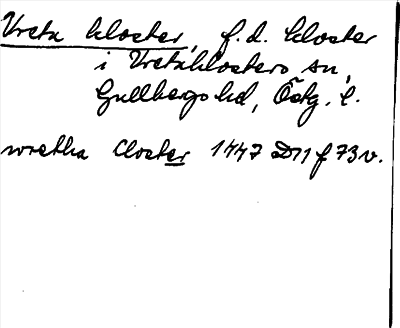 Vreta kloster, f.d. kloster
i Vretaklosters sn,
Gullbergs hd, Östg. l.
wretha Closter 1447 D11 f 73 v.